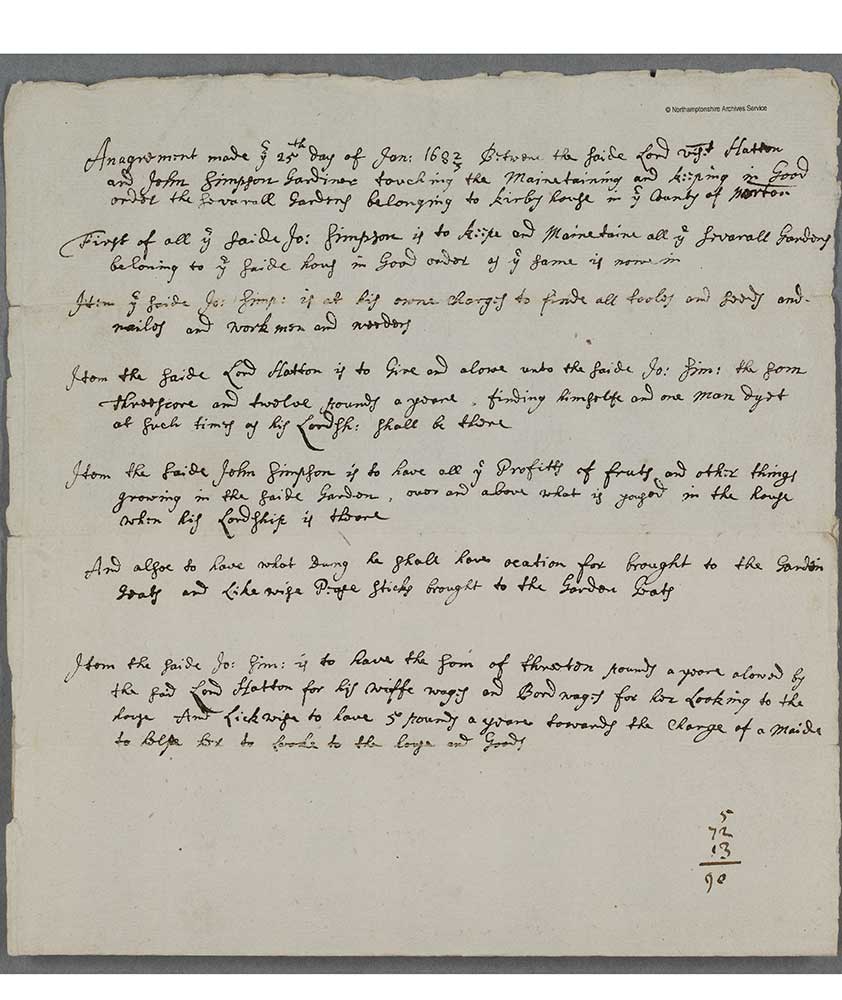 © Northamptonshire Archives Service
Anagrement made ye 25th day of Jan: 1682/3 Betwene the saide Lord Vist Hatton
and John Simpson Gardiner touching the Mainetaining and keeping in Good
order the sevarall Gardens belonging to Kirby house in ye County of Norton
First of all ye saide Jo: Simpson is to keipe and Mainetaine all ye sevarall Gardens
beloning to ye saide hous in Good order as ye same is now in
Item ye saide Jo: Simp: is at his owne Charges to finde all tooles and seeds and
nailes and workmen and weeders
Item the saide Lord Hatton is to Give and alowe unto the saide Jo: Sim: the som
threescore and twelve pounds a yeare, finding himselfe and one man dyet
at such times as his Lordsh: shall be there
Item the saide John Simpson is to have all ye Profitts of fruts and other things
growing in the saide Garden, over and above what is in the house
when his Lordship is theare
And alsoe to have what dung he shall have ocation for brought to the Garden
Geats and Likewise Pease sticks brought to the Garden Geats
Item the saide Jo: Sim: is to have the som of threeten pounds a yeare alowed by
the said Lord Hatton for his wiffe wages and Bord wages for her Looking to the
house And Lickwise to have 5 pounds a yeare towards the Charge of a Maide
to helpe her to Looke to the house and Goods
5
72
13
90